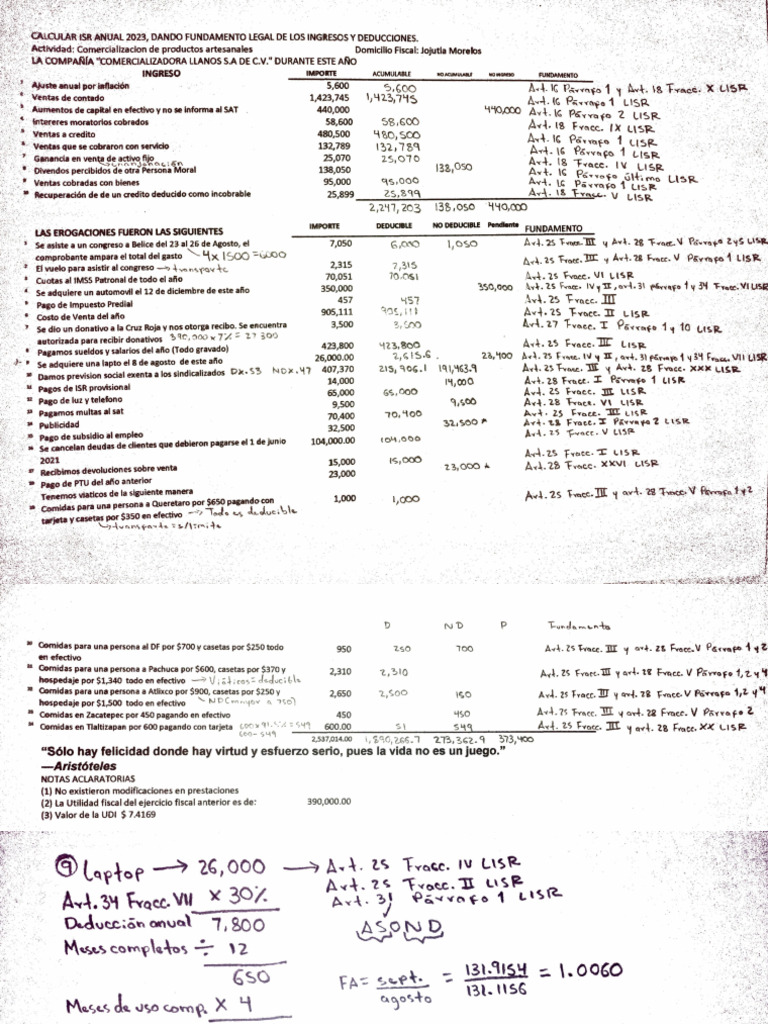 CALCULAR ISR ANUAL 2023, DANDO FUNDAMENTO LEGAL DE LOS INGRESOS Y DEDUCCIONES.
Actividad: Comercializacion de productos artesanales Domicilio Fiscal: Jojutla Morelos
LA COMPAÑÍA "COMERCIALIZADORA LLANOS S.A DE C.V." DURANTE ESTE AÑO
INGRESO IMPORTE ACUMULABLE NO ACUMULABLE NO INGRESO FUNDAMENTO
Ajuste anual por inflación 5,600 5,600 Art. 16 Párrafo 1 y Art. 18 Fracc. X LISR
Ventas de contado 1,423,745 1,423,745 Art. 16 Párrafo 1 LISR
Aumentos de capital en efectivo y no se informa al SAT 440,000 440,000 Art. 16 Párrafo 2 LISR
Intereres moratorios cobrados 58,600 58,600 Art. 18 Fracc. IX LISR
Ventas a credito 480,500 480,500 Art. 16 Párrafo 1 LISR
Ventas que se cobraron con servicio 132,789 132,789 Art. 16 Párrafo 1 LISR
Ganancia en venta de activo fijo 25,070 25,070 Art. 18 Fracc. IV LISR
Divendos percibidos de otra Persona Moral 138,050 138,050 Art. 16 Párrafo último LISR
Ventas cobradas con bienes 95,000 95,000 Art. 16 Párrafo 1 LISR
Recuperación de de un credito deducido como incobrable 25,899 25,899 Art. 18 Fracc. V LISR
2,247,203 138,050 440,000
LAS EROGACIONES FUERON LAS SIGUIENTES IMPORTE DEDUCIBLE NO DEDUCIBLE Pendiente FUNDAMENTO
Se asiste a un congreso a Belice del 23 al 26 de Agosto, el 7,050 6,000 1,050 Art. 25 Fracc. III y Art. 28 Fracc. V Párrafo 2 y 5 LISR
comprobante ampara el total del gasto 4x1500=6000
El vuelo para asistir al congreso → transporte 2,315 2,315 Art. 25 Fracc. III y Art. 28 Fracc. V Párrafo 1 LISR
Cuotas al IMSS Patronal de todo el año 70,051 70,051 Art. 25 Fracc. VI LISR
Se adquiere un automovil el 12 de diciembre de este año 350,000 350,000 Art. 25 Fracc. IV y II, art. 31 párrafo 1 y 34 Fracc. VI LISR
Pago de Impuesto Predial 457 457 Art. 25 Fracc. III
Costo de Venta del año 905,111 905,111 Art. 25 Fracc. II LISR
Se dio un donativo a la Cruz Roja y nos otorga recibo. Se encuentra 3,500 3,500 Art. 27 Fracc. I Párrafo 1 y 10 LISR
autorizada para recibir donativos 390,000x7%=27 300
Pagamos sueldos y salarios del año (Todo gravado) 423,800 423,800 Art. 25 Fracc. III LISR
Se adquiere una lapto el 8 de agosto de este año 26,000.00 2,615.6 23,400 Art. 25 Fracc. IV y II, art. 31 párrafo 1 y 34 Fracc. VII LISR
Damos prevision social exenta a los sindicalizados DX.53 NDX.47 407,370 215,906.1 191,463.9 Art. 25 Fracc. III y Art. 28 Fracc. XXX LISR
Pagos de ISR provisional 14,000 14,000 Art. 28 Fracc. I Párrafo 1 LISR
Pago de luz y telefono 65,000 65,000 Art. 25 Fracc. III LISR
Pagamos multas al sat 9,500 9,500 Art. 28 Fracc. VI LISR
Publicidad 70,400 70,400 Art. 25 Fracc. III LISR
Pago de subsidio al empleo 32,500 32,500 * Art. 28 Fracc. I Párrafo 2 LISR
Se cancelan deudas de clientes que debieron pagarse el 1 de junio 104,000.00 104,000 Art. 25 Fracc. V LISR
2021
Recibimos devoluciones sobre venta 15,000 15,000 Art. 25 Fracc. I LISR
Pago de PTU del año anterior 23,000 23,000 * Art. 28 Fracc. XXVI LISR
Tenemos viaticos de la siguiente manera
Comidas para una persona a Queretaro por $650 pagando con 1,000 1,000 Art. 25 Fracc. III y art. 28 Fracc. V Párrafo 1 y 2
tarjeta y casetas por $350 en efectivo → Todo es deducible
→ transporte = s/limite
D ND P Fundamento
Comidas para una persona al DF por $700 y casetas por $250 todo 950 250 700 Art. 25 Fracc. III y art. 28 Fracc. V Párrafo 1 y 2
en efectivo
Comidas para una persona a Pachuca por $600, casetas por $370 y 2,310 2,310 Art. 25 Fracc. III y art. 28 Fracc. V Párrafo 1, 2 y 4
hospedaje por $1,340 todo en efectivo → Viáticos=deducible
Comidas para una persona a Atlixco por $900, casetas por $250 y 2,650 2,500 150 Art. 25 Fracc. III y art. 28 Fracc. V Párrafo 1, 2 y 4
hospedaje por $1,500 todo en efectivo ND(mayor a 750)
Comidas en Zacatepec por 450 pagando en efectivo 450 450 Art. 25 Fracc. III y art. 28 Fracc. V Párrafo 2
Comidas en Tlaltizapan por 600 pagando con tarjeta 600x91.5%=549 600.00 51 549 Art. 25 Fracc. III y art. 28 Fracc. XX LISR
600-549
2,537,014.00 1,890,265.7 273,362.9 373,400
"Sólo hay felicidad donde hay virtud y esfuerzo serio, pues la vida no es un juego."
—Aristóteles
NOTAS ACLARATORIAS
(1) No existieron modificaciones en prestaciones
(2) La Utilidad fiscal del ejercicio fiscal anterior es de: 390,000.00
(3) Valor de la UDI $ 7.4169
⑨ Laptop → 26,000 → Art. 25 Fracc. IV LISR
Art. 25 Fracc. II LISR
Art. 34 Fracc. VII x 30% Art. 31 Párrafo 1 LISR
Deducción anual 7,800 ASOND
Meses completos ÷ 12
650 FA= sept. / agosto = 131.9154 / 131.1156 = 1.0060
Meses de uso comp. x 4